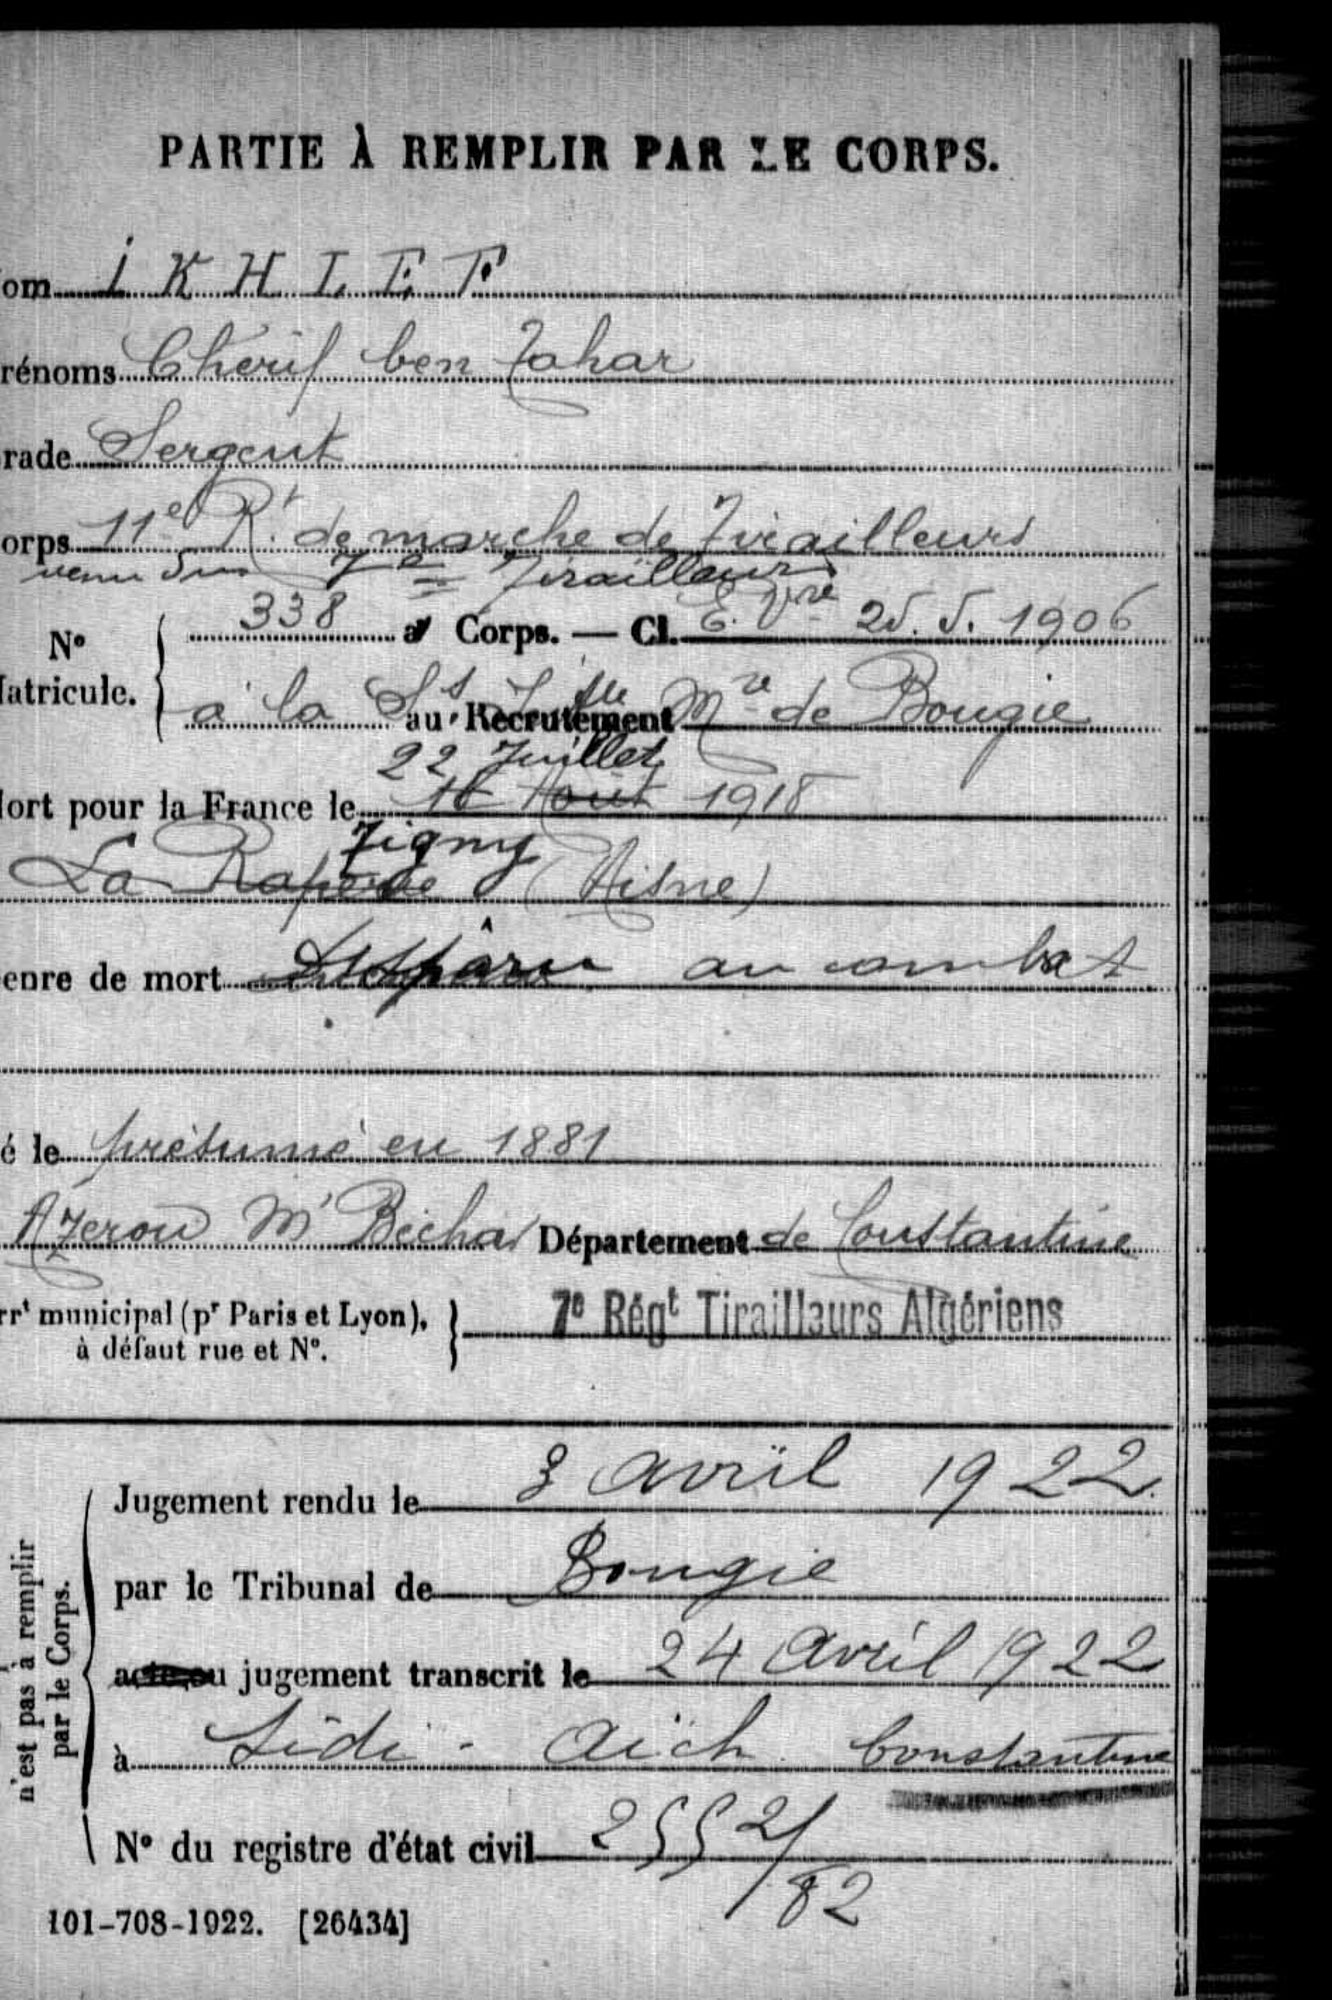 PARTIE À REMPLIR PAR LE CORPS.
om IKHLEF
rénoms Chérif ben Tahar
rade Sergent
orps 11e Rt de marche de Tirailleurs
venu du 7e Tirailleurs
338 a Corps. — Cl. E. Vre 25.5.1906
No
atricule.
à la au Recrutement Mre de Bougie
22 Juillet
ort pour la France le 16 Août 1918
Tigny
La (Aisne)
enre de mort Disparu au combat
é le présumé en 1881
Azerou M' Bécha Département de Constantine
rrt municipal (pr Paris et Lyon), à défaut rue et No.
7e Régt Tirailleurs Algériens
n'est pas à remplir par le Corps.
Jugement rendu le 3 avril 1922
par le Tribunal de Bougie
acte ou jugement transcrit le 24 avril 1922
à Sidi-Aïch Constantine
No du registre d'état civil 2552/
82
101-708-1922. [26434]